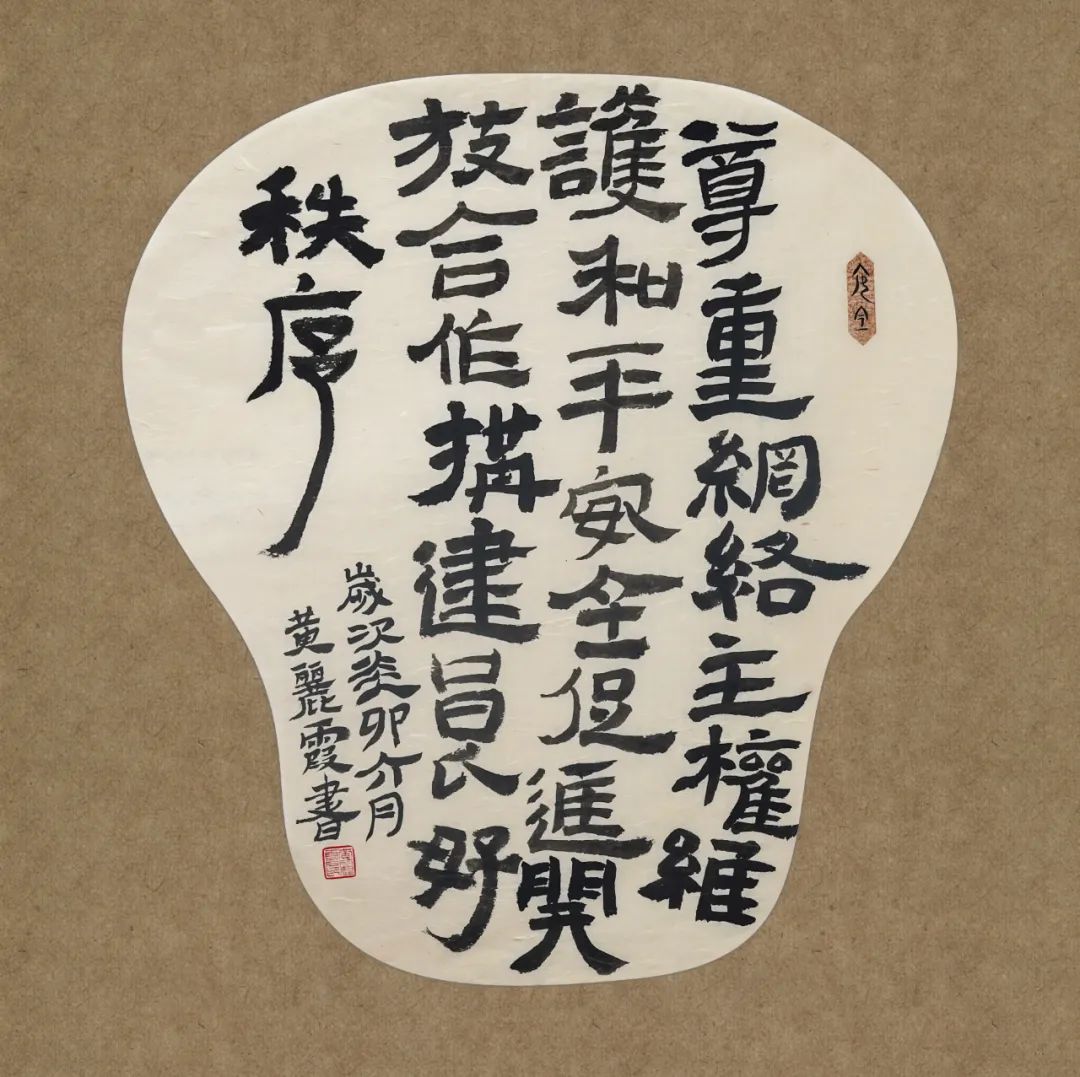 尊重網絡主權維
護和平安全促進開
放合作構建良好
秩序
歲次癸卯六月
黃麗霞書